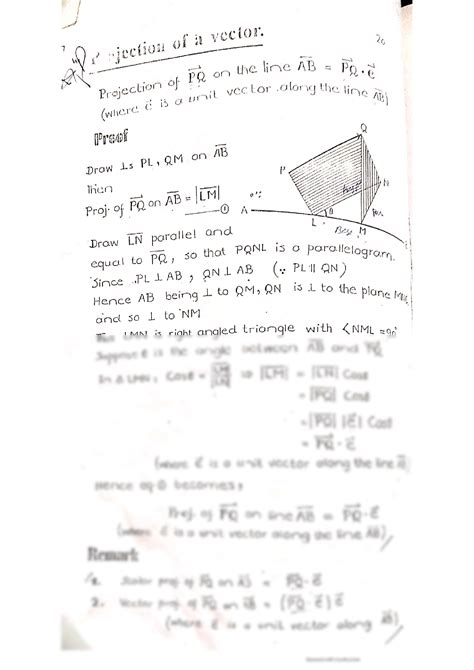 Projection of a vector.
20
Projection of P͞Q on the line A͞B = P͞Q · c⃗
(where c⃗ is a unit vector along the line A͞B)
Proof
Draw ⊥s PL, QM on A͞B
Then
Proj. of P͞Q on A͞B = |L͞M| —① 
Q
P
N
A
L
θ
Base
M
Draw L͞N parallel and
equal to P͞Q, so that PQNL is a parallelogram.
Since PL ⊥ AB, QN ⊥ AB (∵ PL || QN)
Hence AB being ⊥ to QM, QN is ⊥ to the plane
and so ⊥ to NM
Thus LMN is right angled triangle with ∠NML = 90°
Suppose θ is the angle between A͞B and P͞Q
In Δ LMN, Cosθ = |L͞M|/|L͞N| ⇒ |L͞M| = |L͞N| Cosθ
= |P͞Q| Cosθ
= |P͞Q| |c⃗| Cosθ
= P͞Q · c⃗
(where c⃗ is a unit vector along the line
Hence eq ① becomes;
Proj. of P͞Q on line A͞B = P͞Q · c⃗
(where c⃗ is a unit vector along the line A͞B)
Remark
1. Scalar proj. of P͞Q on A͞B = P͞Q · c⃗
2. Vector proj. of P͞Q on A͞B = (P͞Q · c⃗) c⃗
(where c⃗ is a unit vector along A͞B)